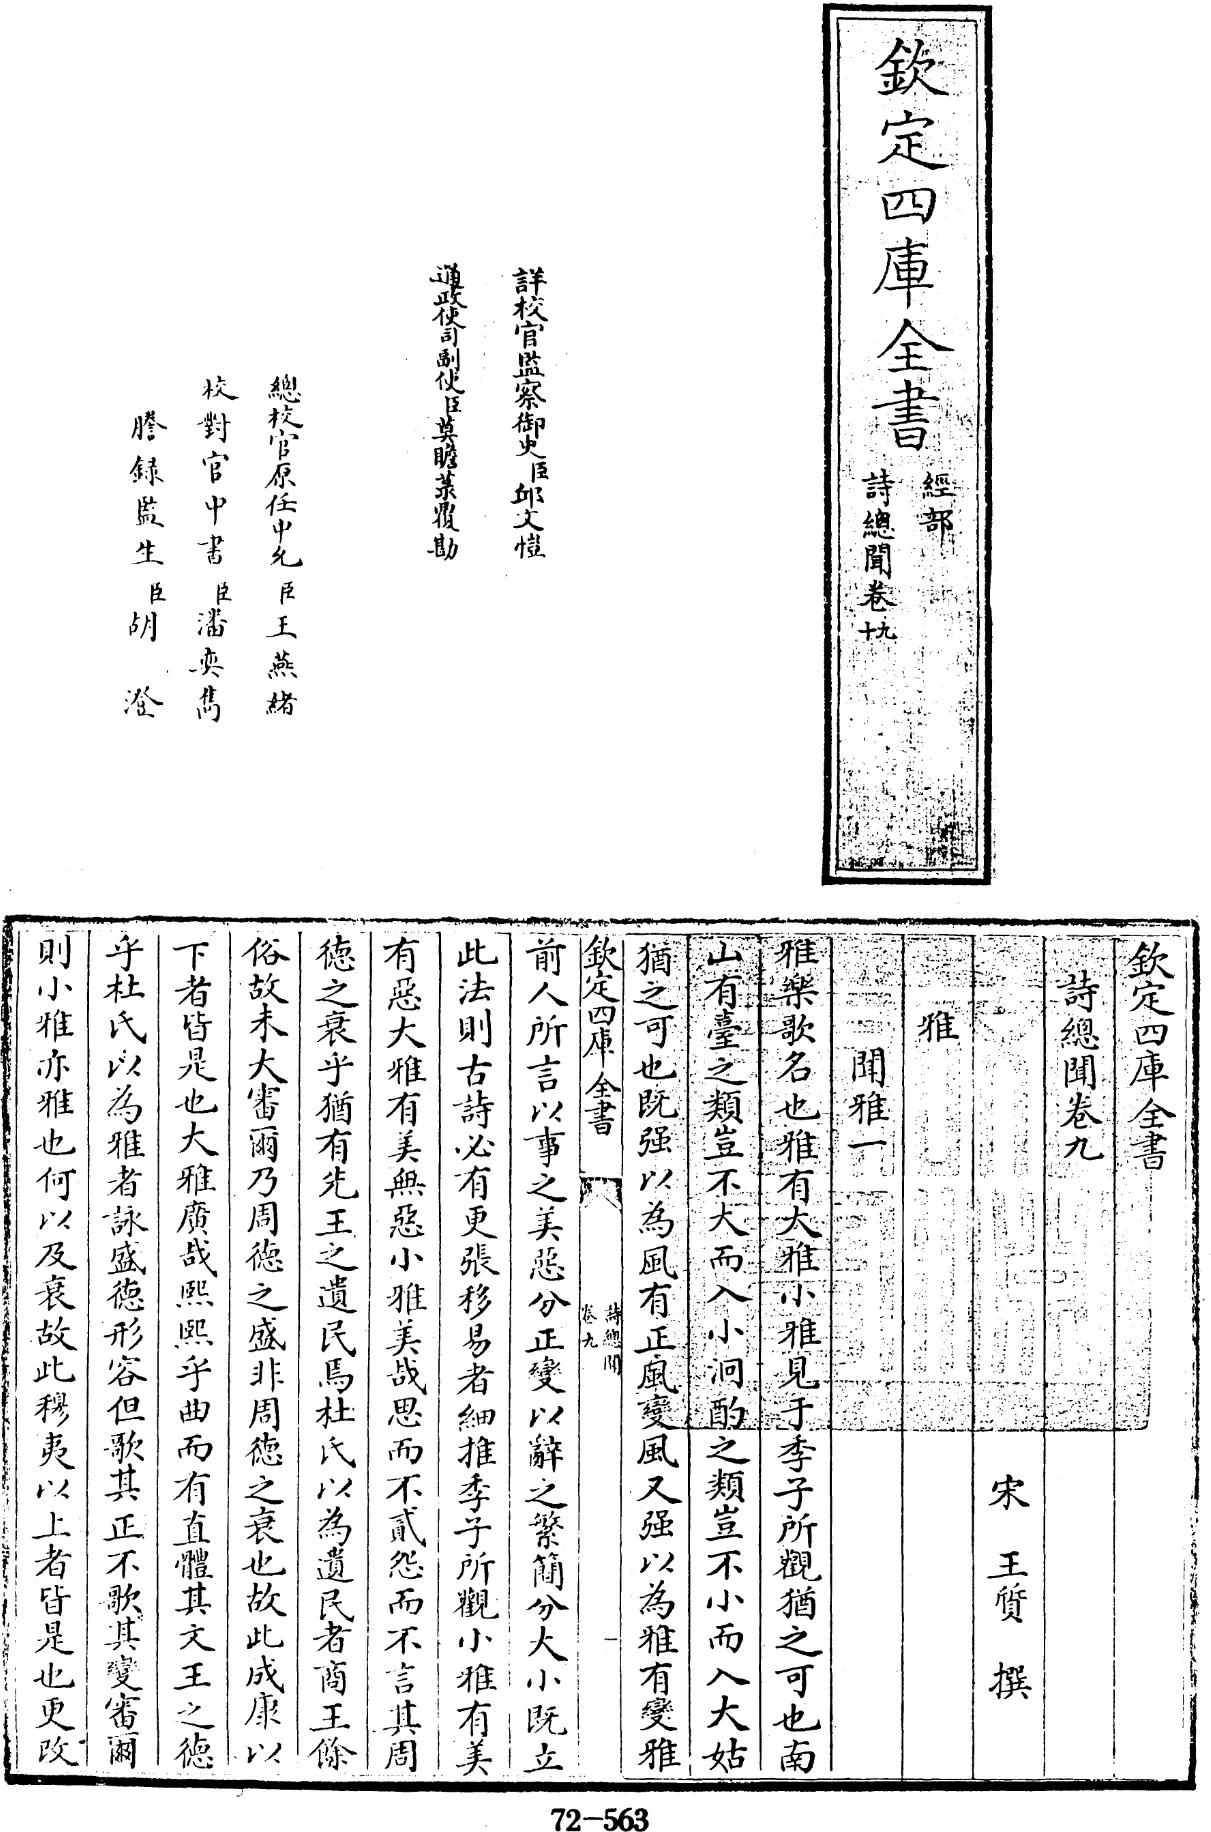 欽定四庫全書
經部
詩總聞卷十九
詳校官監察御史臣邱文愷
通政使司副使臣莫瞻菉覆勘
總校官原任中允臣王燕緒
校對官中書臣潘奕雋
謄録監生臣胡澄
欽定四庫全書
詩總聞卷九
宋王質撰
雅
聞雅一
雅樂歌名也雅有大雅小雅見于季子所觀猶之可也南
山有臺之類豈不大而入小泂酌之類豈不小而入大姑
猶之可也既强以為風有正風變風又强以為雅有變雅
欽定四庫全書
詩總聞
卷九
一
前人所言以事之美惡分正變以辭之繁簡分大小既立
此法則古詩必有更張移易者細推季子所觀小雅有美
有惡大雅有美無惡小雅美哉思而不貳怨而不言其周
德之衰乎猶有先王之遺民焉杜氏以為遺民者商王餘
俗故未大審爾乃周德之盛非周德之衰也故此成康以
下者皆是也大雅廣哉熙熙乎曲而有直體其文王之德
乎杜氏以為雅者詠盛德形容但歌其正不歌其變審爾
則小雅亦雅也何以及衰故此穆夷以上者皆是也更改
72-563